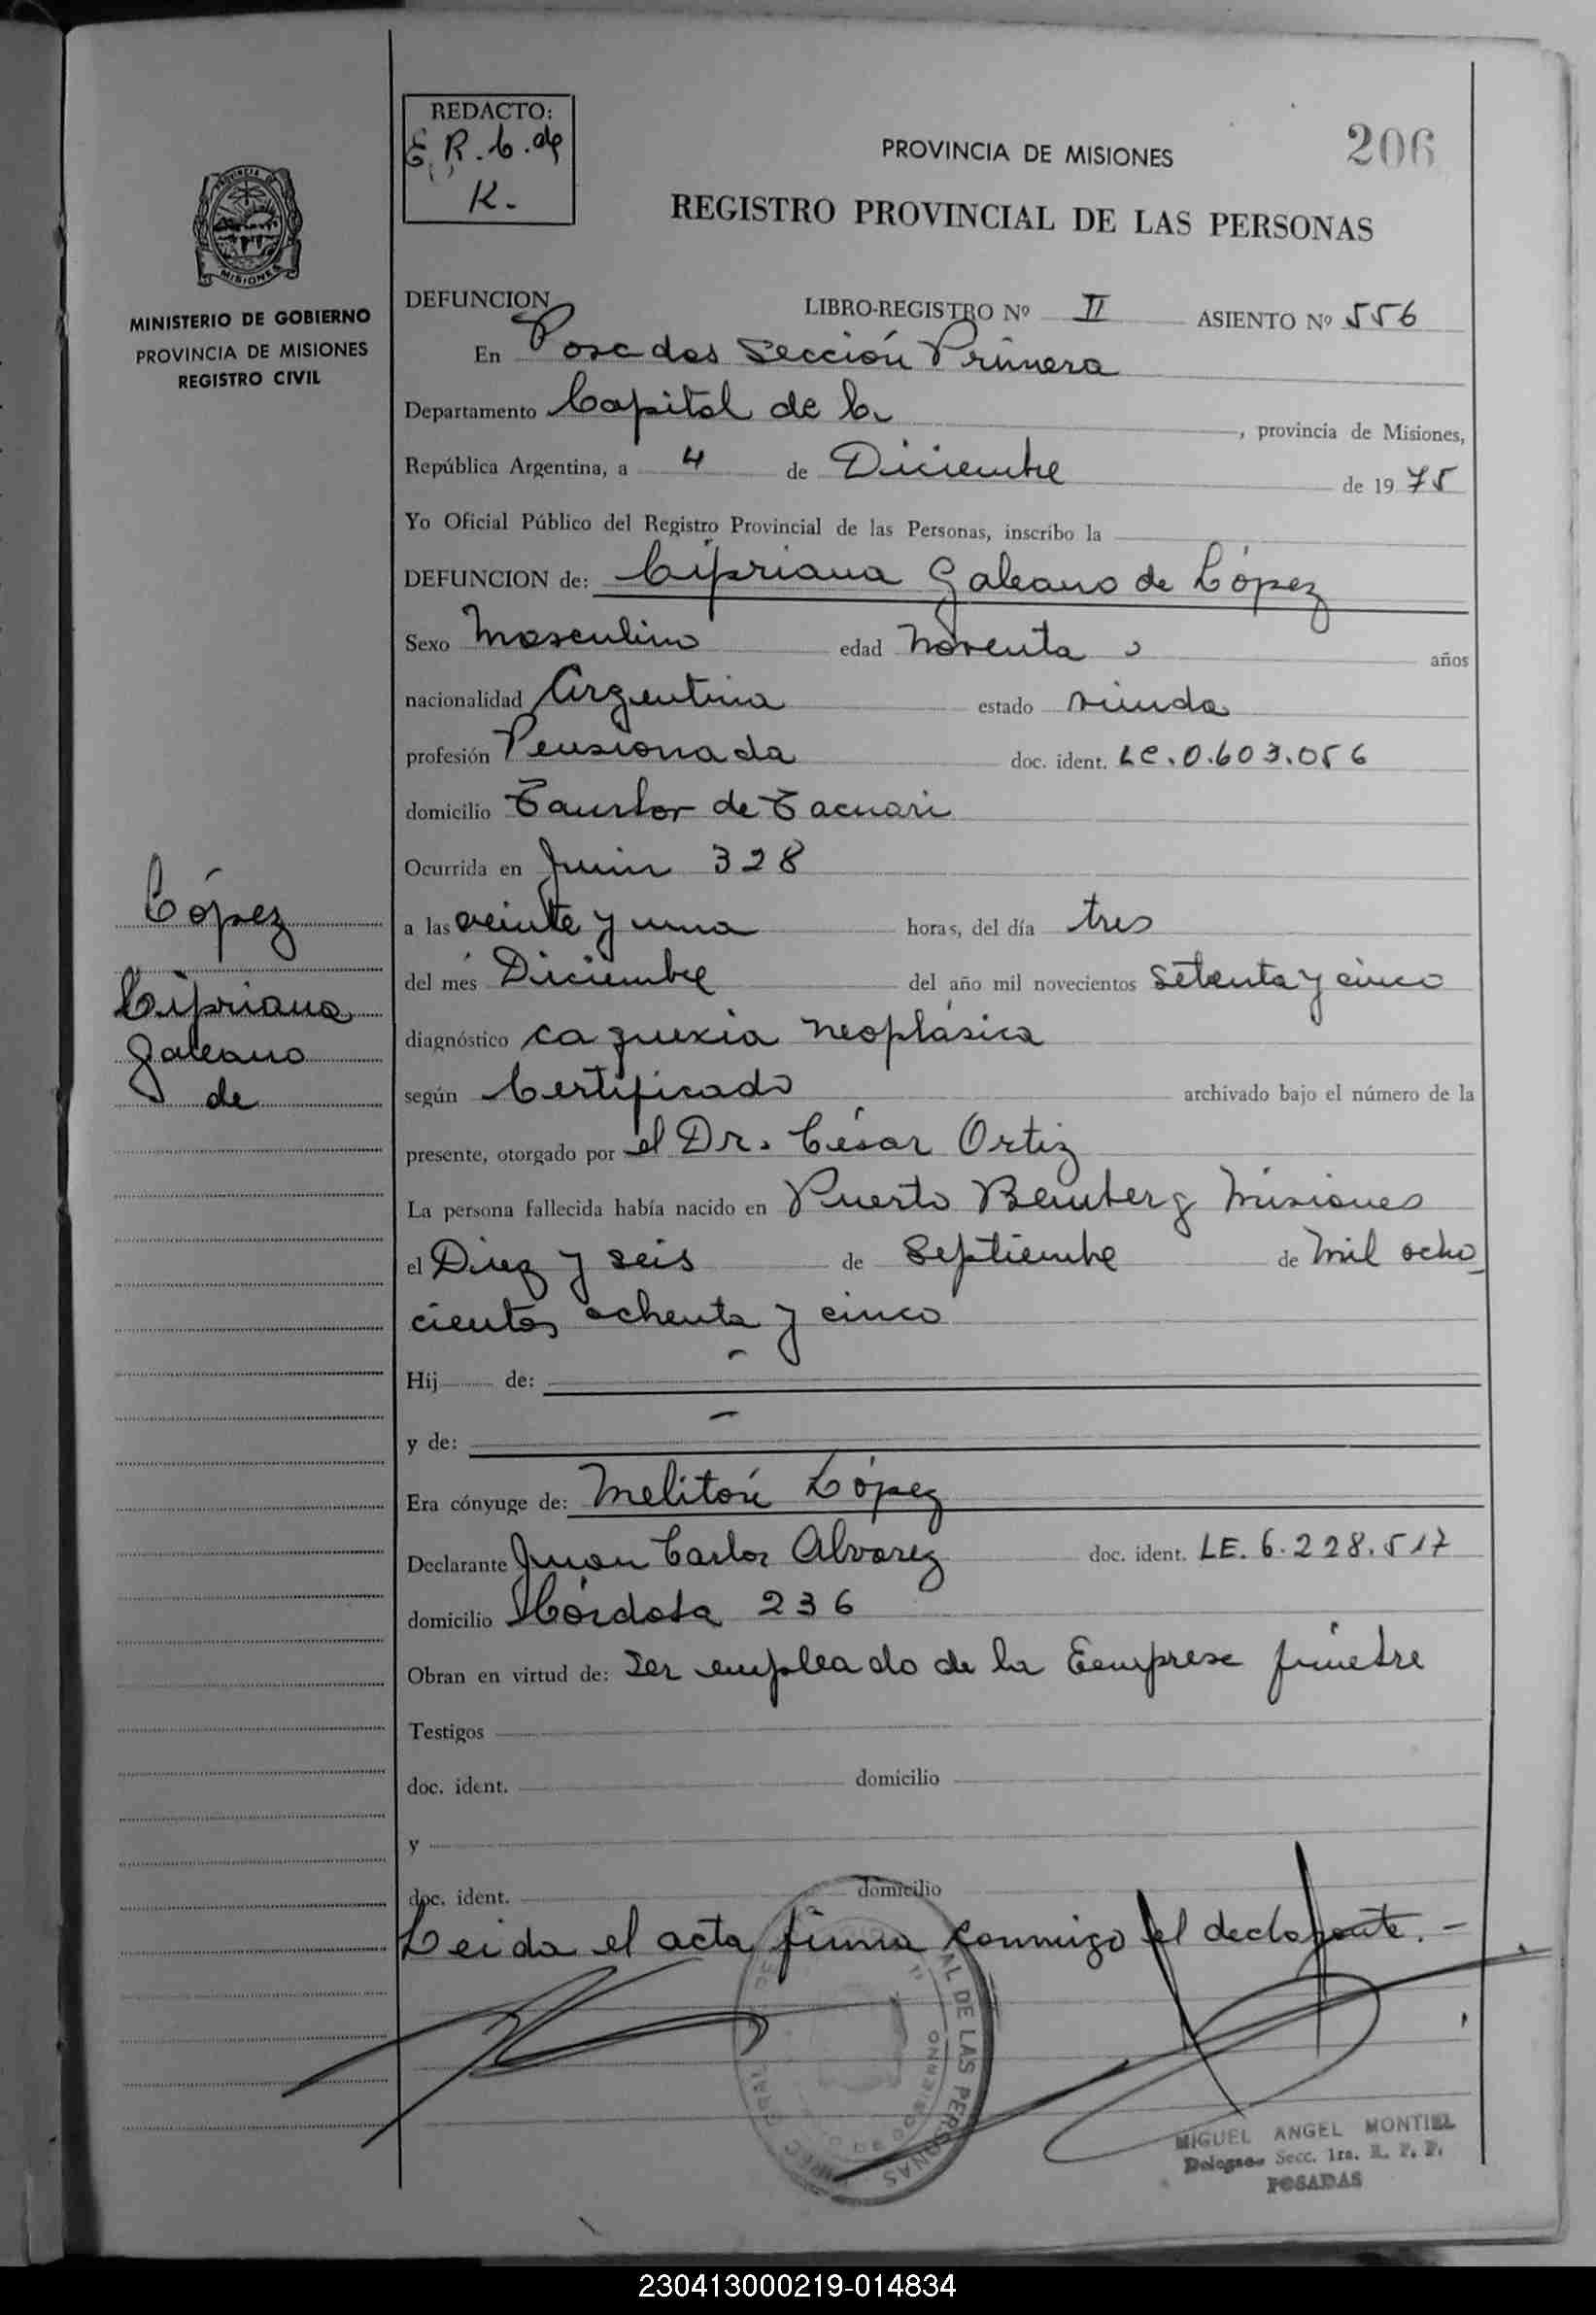 REDACTO:
E. R. C. de
K.-
206
PROVINCIA DE MISIONES
REGISTRO PROVINCIAL DE LAS PERSONAS
PROVINCIA DE
MISIONES
MINISTERIO DE GOBIERNO
PROVINCIA DE MISIONES
REGISTRO CIVIL
DEFUNCION LIBRO-REGISTRO Nº II ASIENTO Nº 556
En Posadas Sección Primera
Departamento Capital de la, provincia de Misiones,
República Argentina, a 4 de Diciembre de 1975
Yo Oficial Público del Registro Provincial de las Personas, inscribo la
DEFUNCION de: Cipriana Galeano de López
Sexo Masculino edad Noventa años
nacionalidad Argentina estado viuda
profesión Pensionada doc. ident. LC. 0.603.056
domicilio de Tacuari
Ocurrida en Junin 328
a las veinte y una horas, del día tres
del mes Diciembre del año mil novecientos setenta y cinco
diagnóstico caquexia neoplásica
según Certificado archivado bajo el número de la
presente, otorgado por el Dr. César Ortiz
La persona fallecida había nacido en Puerto Bemberg Misiones
el Diez y seis de Septiembre de mil ocho
cientos ochenta y cinco
Hij de: -
y de: -
Era cónyuge de: Melitón López
Declarante Juan Carlos Alvarez doc. ident. LE. 6.228.517
domicilio Córdoba 236
Obran en virtud de: ser empleado de la Empresa fúnebre
Testigos
doc. ident. domicilio
y
doc. ident. domicilio
Leida el acta firma conmigo el declarante.-
López
Cipriana
Galeano
de
AL DE LAS PERSONAS
MIGUEL ANGEL MONTIEL
Delegado Secc. 1ra. R. P. P.
POSADAS
230413000219-014834